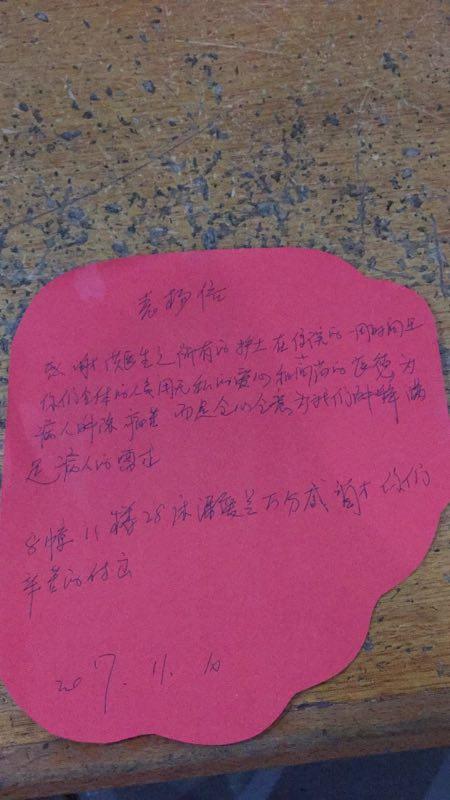 表扬信
感谢洪医生之所有的护士在住院的一周时间里
你们全体的人员用无私的爱心和高尚的医德为
病人解除病痛 而是全心全意为我们解释 满
足病人的需求
8幢11楼28床 万分感谢 你们
辛苦的付出
2017.11.10